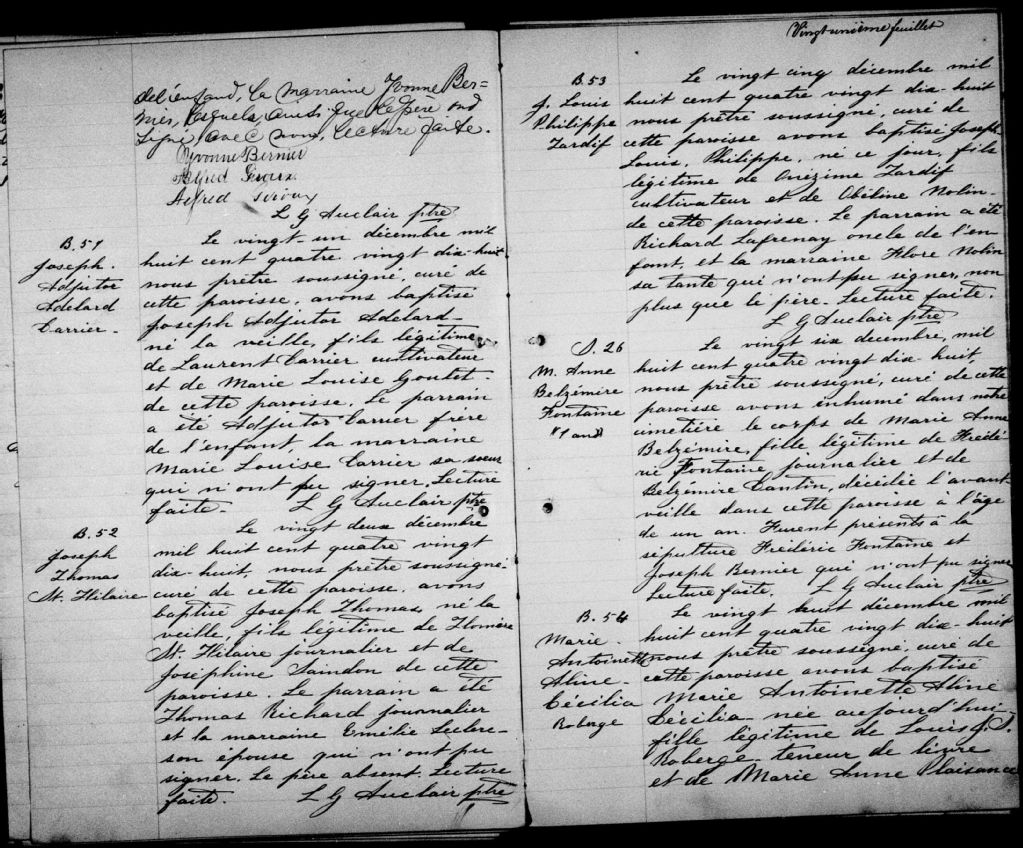 del'enfand, la marraine Yvonne Ber-
nier, lesquels, ainsi que le père ond
signé avec nous, lecture faite.
Yvonne Bernier
Alfred Giroux
Alfred Giroux
L G Auclair ptre
B. 51
Joseph.
Adjutor
Adelard
Carrier.
Le vingt-un décembre mil
huit cent quatre vingt dix-huit
nous prêtre soussigné, curé de
cette paroisse, avons baptisé
Joseph Adjutor Adelard
né la veille, fils légitime
de Laurent Carrier cultivateur
et de Marie Louise Goutet
de cette paroisse. Le parrain
a été Adjutor Carrier frère
de l'enfant, la marraine
Marie Louise Carrier sa soeur
qui n'ont pu signer. Lecture
faite. L G Auclair ptre
B. 52
Joseph
Thomas
St. Hilaire
Le vingt deux décembre
mil huit cent quatre vingt
dix-huit, nous prêtre soussigné
curé de cette paroisse, avons
baptisé Joseph Thomas, né la
veille, fils légitime de
St. Hilaire journalier et de
Joséphine Saindon de cette
paroisse. Le parrain a été
Thomas Richard journalier
et la marraine Emélie Leclerc
son épouse qui n'ont pu
signer. Le père absent. Lecture
faite. L G Auclair ptre
Vingt unième feuillet
B. 53
J. Louis
Philippe
Tardif
Le vingt cinq décembre mil
huit cent quatre vingt dix-huit
nous prêtre soussigné, curé de
cette paroisse avons baptisé Joseph
Louis, Philippe, né ce jour, fils
légitime de Onézime Tardif
cultivateur et de Obéline Nolin
de cette paroisse. Le parrain a été
Richard Lafrenay oncle de l'en
fant, et la marraine Flore Nolin
sa tante qui n'ont pu signer, non
plus que le père. Lecture faite.
L G Auclair ptre
S. 26
M. Anne
Belzémire
Fontaine
"1 an"
Le vingt six decembre, mil
huit cent quatre vingt dix-huit,
nous prêtre soussigné, curé de cette
paroisse avons inhumé dans notre
cimetière le corps de Marie Anne
Belzémire, fille légitime de Frédé-
ric Fontaine journalier et de
Belzémire Cantin, décédée l'avant
veille dans cette paroisse à l'âge
de un an. Furent présents à la
sépulture Frédéric Fontaine et
Joseph Bernier qui n'ont pu signer
Lecture faite. L G Auclair ptre
B. 54
Marie
Antoinette
Aline
Cécilia
Roberge
Le vingt huit décembre mil
huit cent quatre vingt dix-huit
nous prêtre soussigné, curé de
cette paroisse avons baptisé
Marie Antoinette Aline
Cécilia née aujourd'hui
fille légitime de Louis J. S.
Roberge teneur de livre
et de Marie Anne Plaisance